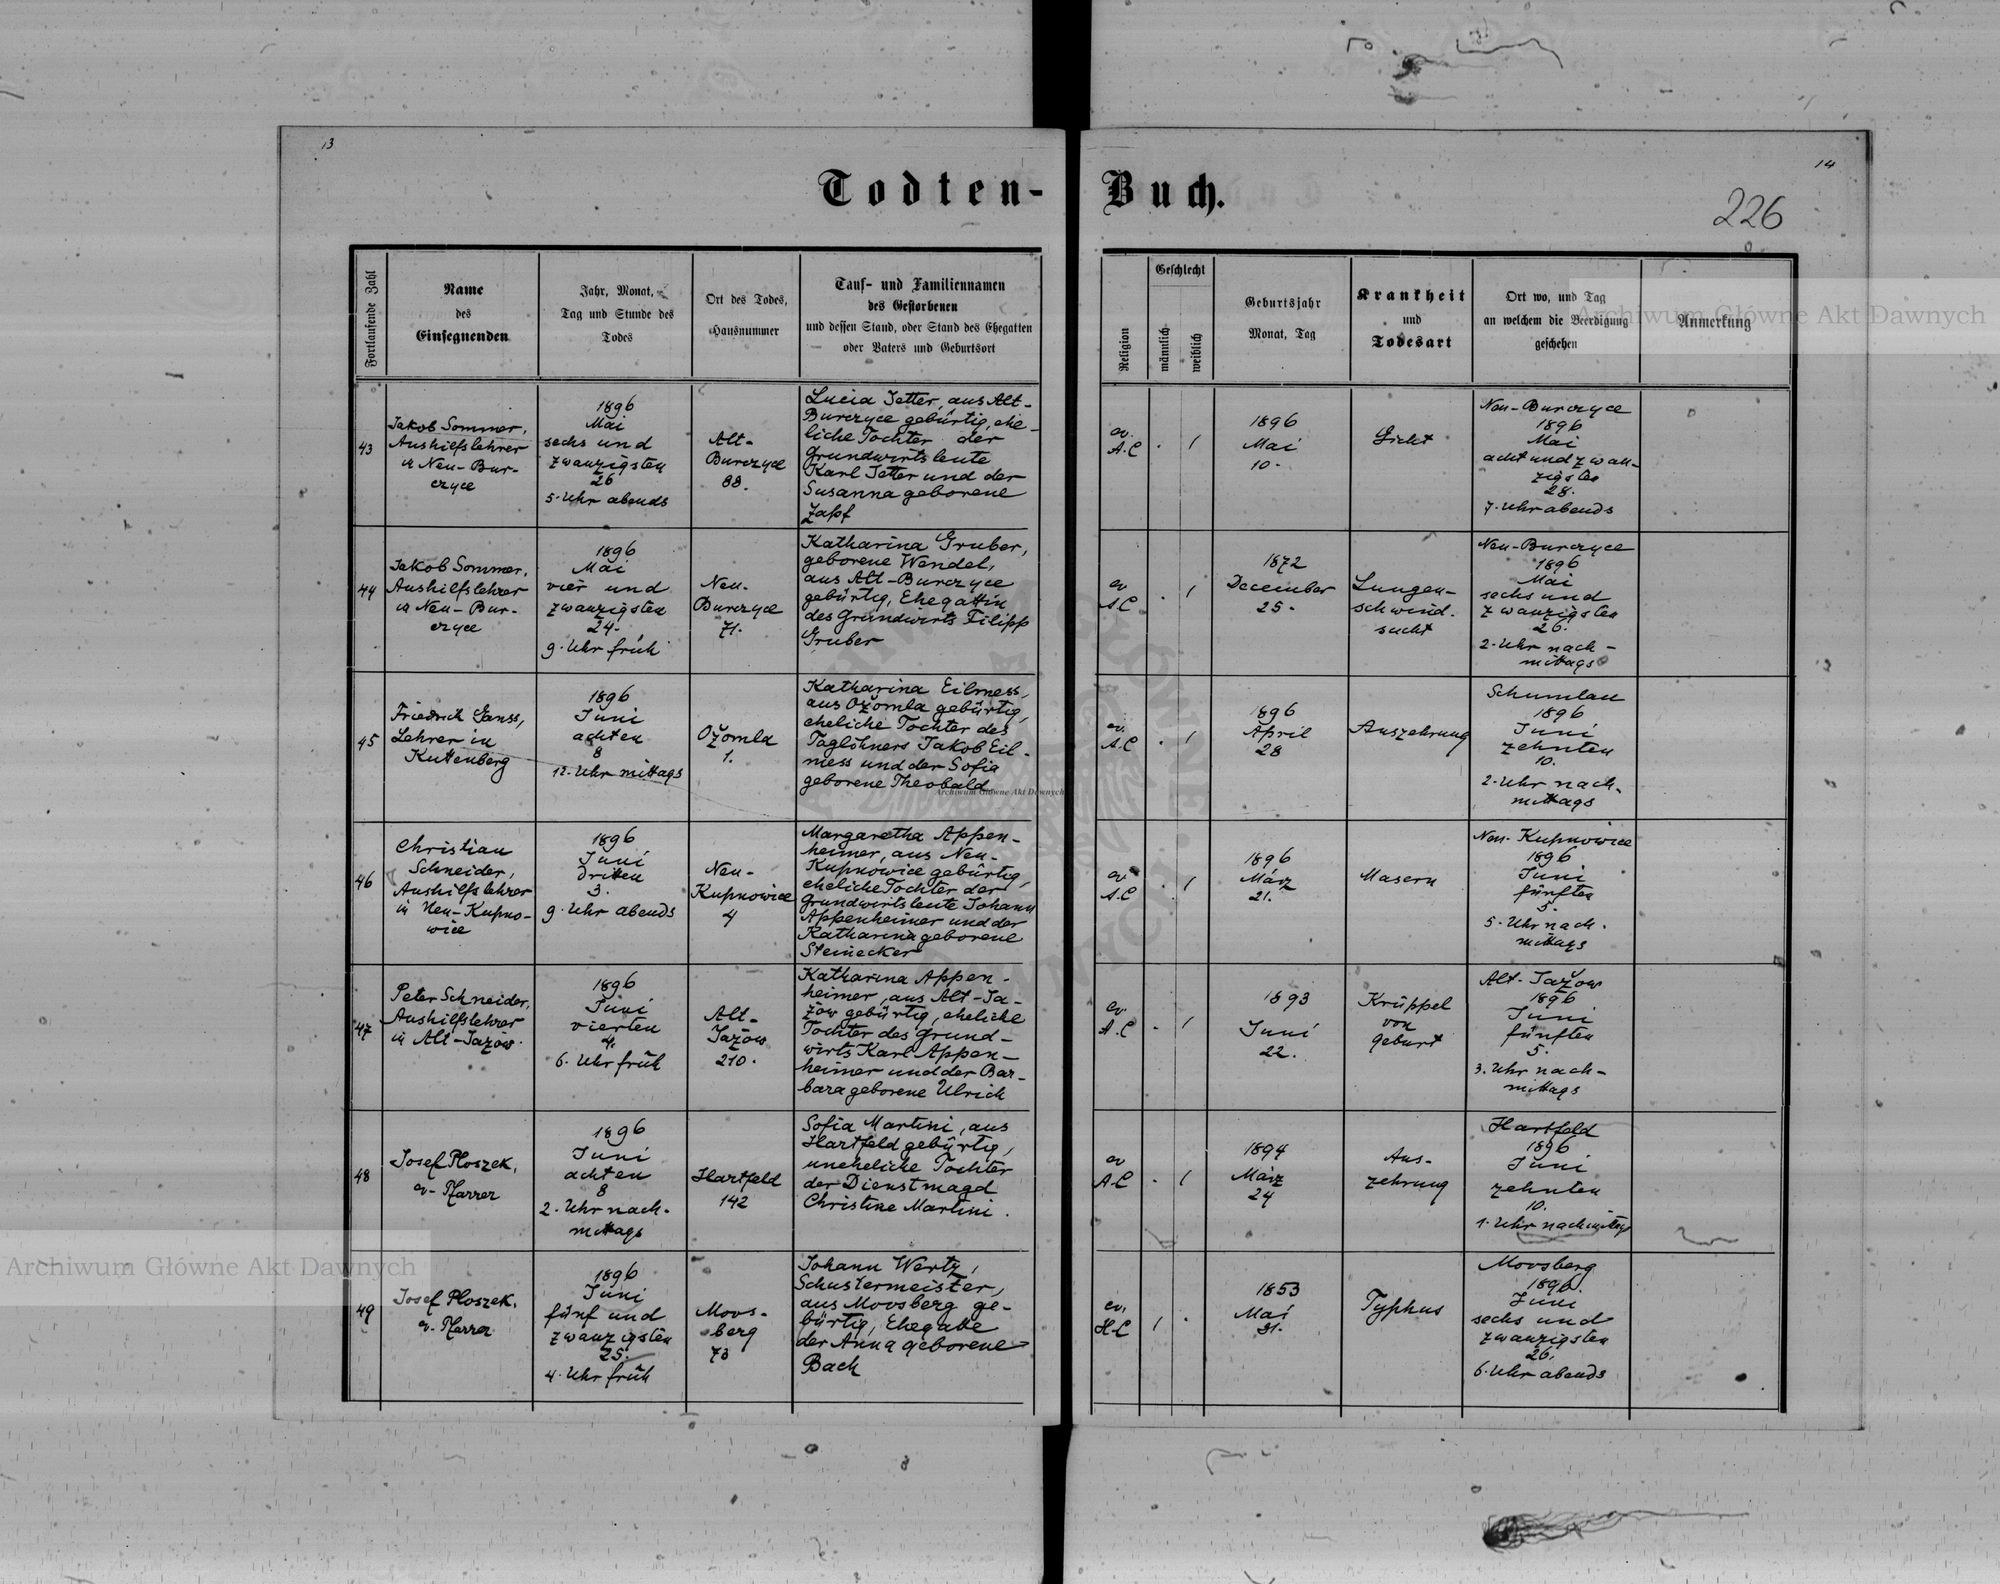 13
14
Todten-Buch.
226
Fortlaufende Zahl
Name
des
Einsegnenden
Jahr, Monat,
Tag und Stunde des
Todes
Ort des Todes,
Hausnummer
Tauf- und Familiennamen
des Gestorbenen
und dessen Stand, oder Stand des Ehegatten
oder Vaters und Geburtsort
Religion
Geschlecht
männlich
weiblich
Geburtsjahr
Monat, Tag
Krankheit
und
Todesart
Ort wo, und Tag
an welchem die Beerdigung
geschehen
Anmerkung
Archiwum Główne Akt Dawnych
43
Jakob Sommer,
Aushilfslehrer
in Neu-Bur-
czyce
1896
Mai
sechs und
zwanzigsten
26
5. Uhr abends
Alt-
Burczyce
88.
Lucia Jetter, aus Alt-
Burczyce gebürtig, ehe-
liche Tochter der
Grundwirtsleute
Karl Jetter und der
Susanna geborene
Zapf
ev.
A.C
. 1
1896
Mai
10.
Gicht
Neu-Burczyce
1896
Mai
acht und zwan-
zigsten
28.
7. Uhr abends
44
Jakob Sommer,
Aushilfslehrer
in Neu-Bur-
czyce
1896
Mai
vier und
zwanzigsten
24.
9. Uhr früh
Neu-
Burczyce
71.
Katharina Gruber,
geborene Wendel,
aus Alt-Burczyce
gebürtig, Ehegattin
des Grundwirts Filipp
Gruber
ev
A.C
. 1
1872
December
25.
Lungen-
schwind-
sucht
Neu-Burczyce
1896
Mai
sechs und
zwanzigsten
26.
2. Uhr nach-
mittags
45
Friedrich Ganss,
Lehrer in
Kuttenberg
1896
Juni
achten
8
12. Uhr mittags
Ożomla
1.
Katharina Eilmess,
aus Ożomla gebürtig,
eheliche Tochter des
Taglöhners Jakob Eil-
mess und der Sofia
geborene Theobald
Archiwum Główne Akt Dawnych
ev.
A.C
. 1
1896
April
28
Auszehrung
Schumlau
1896
Juni
zehnten
10.
2. Uhr nach-
mittags
46
Christian
Schneider,
Aushilfslehrer
in Neu-Kupno-
wice
1896
Juni
dritten
3.
9. Uhr abends
Neu-
Kupnowice
4
Margaretha Appen-
heimer, aus Neu-
Kupnowice gebürtig,
eheliche Tochter der
Grundwirtsleute Johann
Appenheimer und der
Katharina geborene
Steinecker
ev
A.C
. 1
1896
März
21.
Masern
Neu-Kupnowice
1896
Juni
fünften
5.
5. Uhr nach-
mittags
47
Peter Schneider,
Aushilfslehrer
in Alt-Jażow.
1896
Juni
vierten
4.
6. Uhr früh
Alt-
Jażow
210.
Katharina Appen-
heimer, aus Alt-Ja-
żow gebürtig, eheliche
Tochter des Grund-
wirts Karl Appen-
heimer und der Bar-
bara geborene Ulrich
ev.
A.C
. 1
1893
Juni
22.
Krüppel
von
Geburt
Alt-Jażow
1896
Juni
fünften
5.
3. Uhr nach-
mittags
48
Josef Ploszek,
ev. Pfarrer
1896
Juni
achten
8
2. Uhr nach-
mittags
Hartfeld
142
Sofia Martini, aus
Hartfeld gebürtig,
uneheliche Tochter
der Dienstmagd
Christine Martini.
ev
A.C
. 1
1894
März
24
Aus-
zehrung
Hartfeld
1896
Juni
zehnten
10.
1. Uhr nachmittags
49
Josef Ploszek,
ev. Pfarrer
1896
Juni
fünf und
zwanzigsten
25.
4. Uhr früh
Moos-
berg
73
Johann Wertz,
Schustermeister,
aus Moosberg ge-
bürtig, Ehegatte
der Anna geborene
Bach
ev.
H.C
1 .
1853
Mai
31.
Typhus
Moosberg
1896
Juni
sechs und
zwanzigsten
26.
6. Uhr abends
Archiwum Główne Akt Dawnych